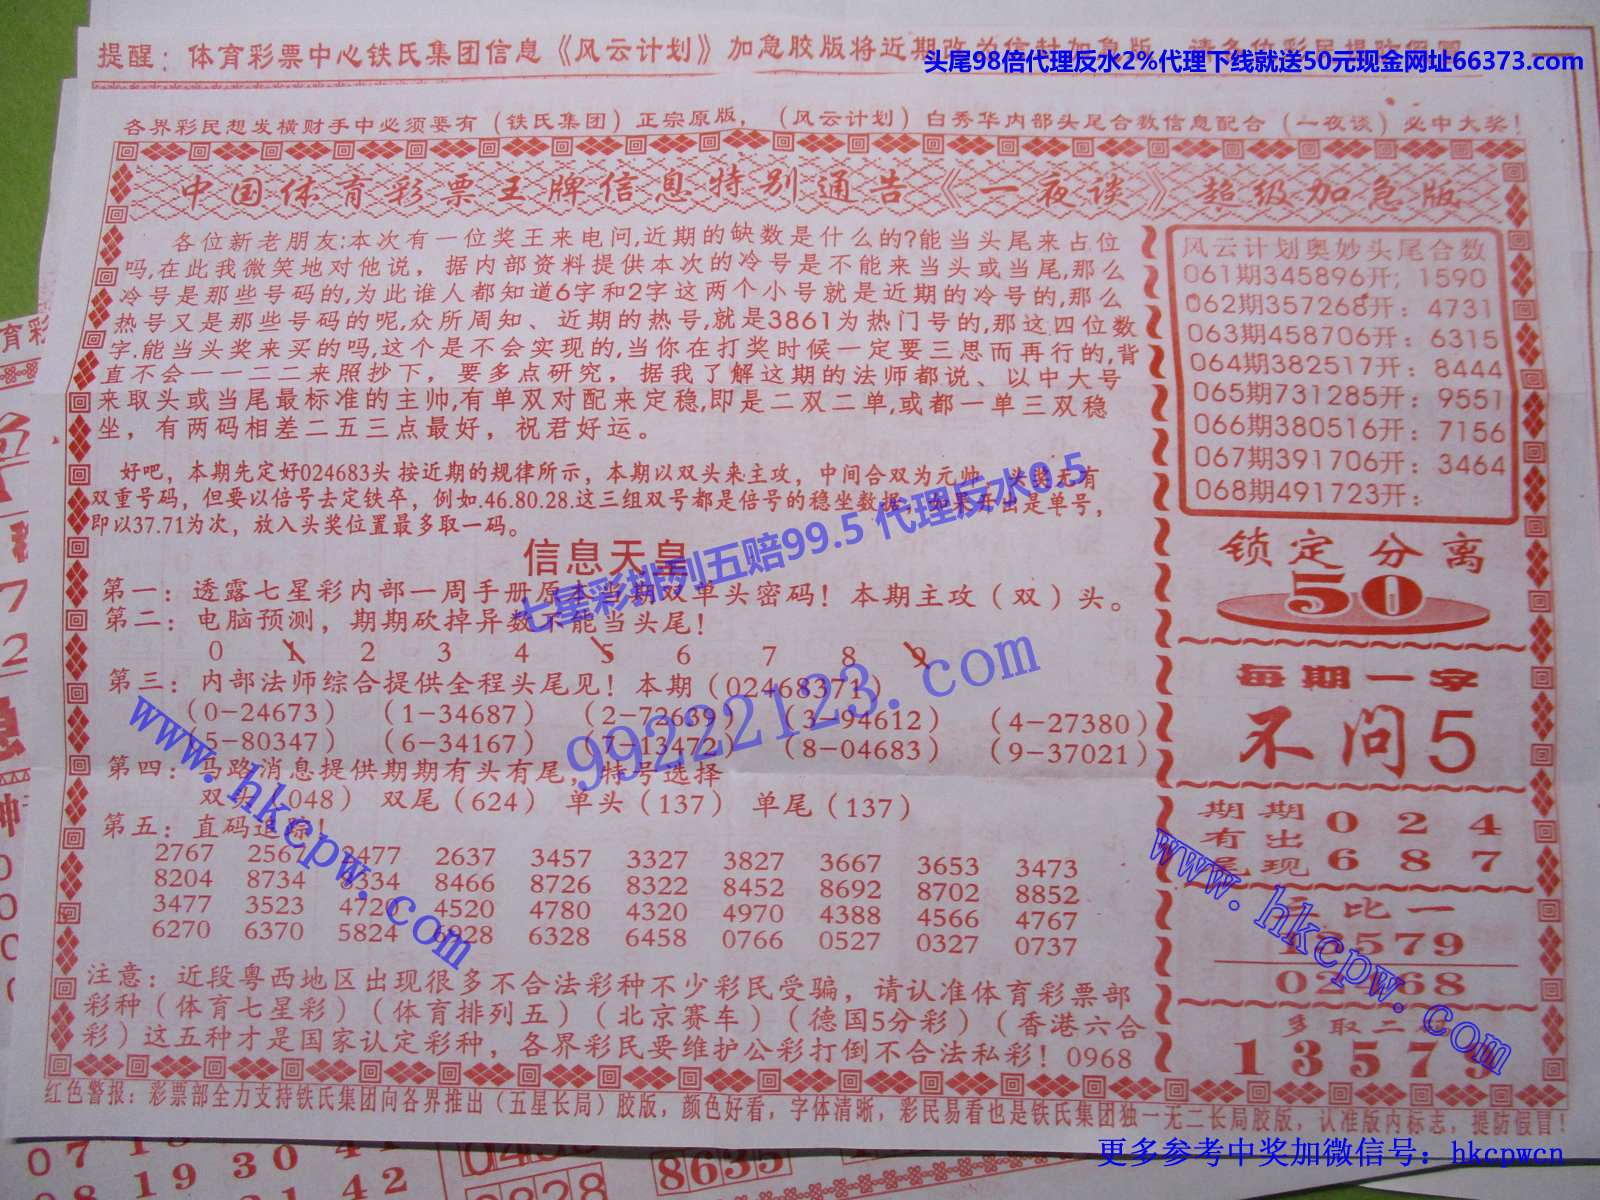 提醒：体育彩票中心铁氏集团信息《风云计划》加急胶版将近期改为信封加急版
头尾98倍代理反水2%代理下线就送50元现金网址66373.com
各界彩民想发横财手中必须要有（铁氏集团）正宗原版，（风云计划）白秀华内部头尾合数信息配合（一夜谈）必中大奖！
中国体育彩票王牌信息特别通告《一夜谈》超级加急版
各位新老朋友:本次有一位奖王来电问,近期的缺数是什么的?能当头尾来占位
吗,在此我微笑地对他说，据内部资料提供本次的冷号是不能来当头或当尾,那么
冷号是那些号码的,为此谁人都知道6字和2字这两个小号就是近期的冷号的,那么
热号又是那些号码的呢,众所周知、近期的热号,就是3861为热门号的,那这四位数
字.能当头奖来买的吗,这个是不会实现的,当你在打奖时候一定要三思而再行的,背
直不会一一二二来照抄下，要多点研究，据我了解这期的法师都说、以中大号
来取头或当尾最标准的主帅,有单双对配来定稳,即是二双二单,或都一单三双稳
坐，有两码相差二五三点最好，祝君好运。
好吧，本期先定好024683头按近期的规律所示，本期以双头来主攻，中间合双为元帅，头奖无有
双重号码，但要以倍号去定铁卒，例如.46.80.28.这三组双号都是倍号的稳坐数据，如果开出是单号，
即以37.71为次，放入头奖位置最多取一码。
信息天皇
第一：透露七星彩内部一周手册原本当期双单头密码！本期主攻（双）头。
第二：电脑预测，期期砍掉异数不能当头尾！
0 1 2 3 4 5 6 7 8 9
第三：内部法师综合提供全程头尾见！本期（02468371）
（0-24673） （1-34687） （2-72639） （3-94612） （4-27380）
（5-80347） （6-34167） （7-13472） （8-04683） （9-37021）
第四：马路消息提供期期有头有尾，特号选择
双头（048） 双尾（624） 单头（137） 单尾（137）
第五：直码追踪！
2767 2567 2477 2637 3457 3327 3827 3667 3653 3473
8204 8734 8334 8466 8726 8322 8452 8692 8702 8852
3477 3523 4720 4520 4780 4320 4970 4388 4566 4767
6270 6370 5824 6928 6328 6458 0766 0527 0327 0737
注意：近段粤西地区出现很多不合法彩种不少彩民受骗，请认准体育彩票部
彩种（体育七星彩）（体育排列五）（北京赛车）（德国5分彩）（香港六合
彩）这五种才是国家认定彩种，各界彩民要维护公彩打倒不合法私彩！0968
风云计划奥妙头尾合数
061期345896开；1590
062期357268开：4731
063期458706开：6315
064期382517开：8444
065期731285开：9551
066期380516开：7156
067期391706开：3464
068期491723开：
锁定分离
50
每期一字
不问5
期期 0 2 4
有出
尾现 6 8 7
比一
13579
02468
多取二
13579
红色警报：彩票部全力支持铁氏集团向各界推出（五星长局）胶版，颜色好看，字体清晰，彩民易看也是铁氏集团独一无二长局胶版，认准版内标志，提防假冒！
七星彩排列五赔99.5 代理反水0.5
99222123.com
www.hkcpw.com
www.hkcpw.com
更多参考中奖加微信号：hkcpwcn
19 30
8635